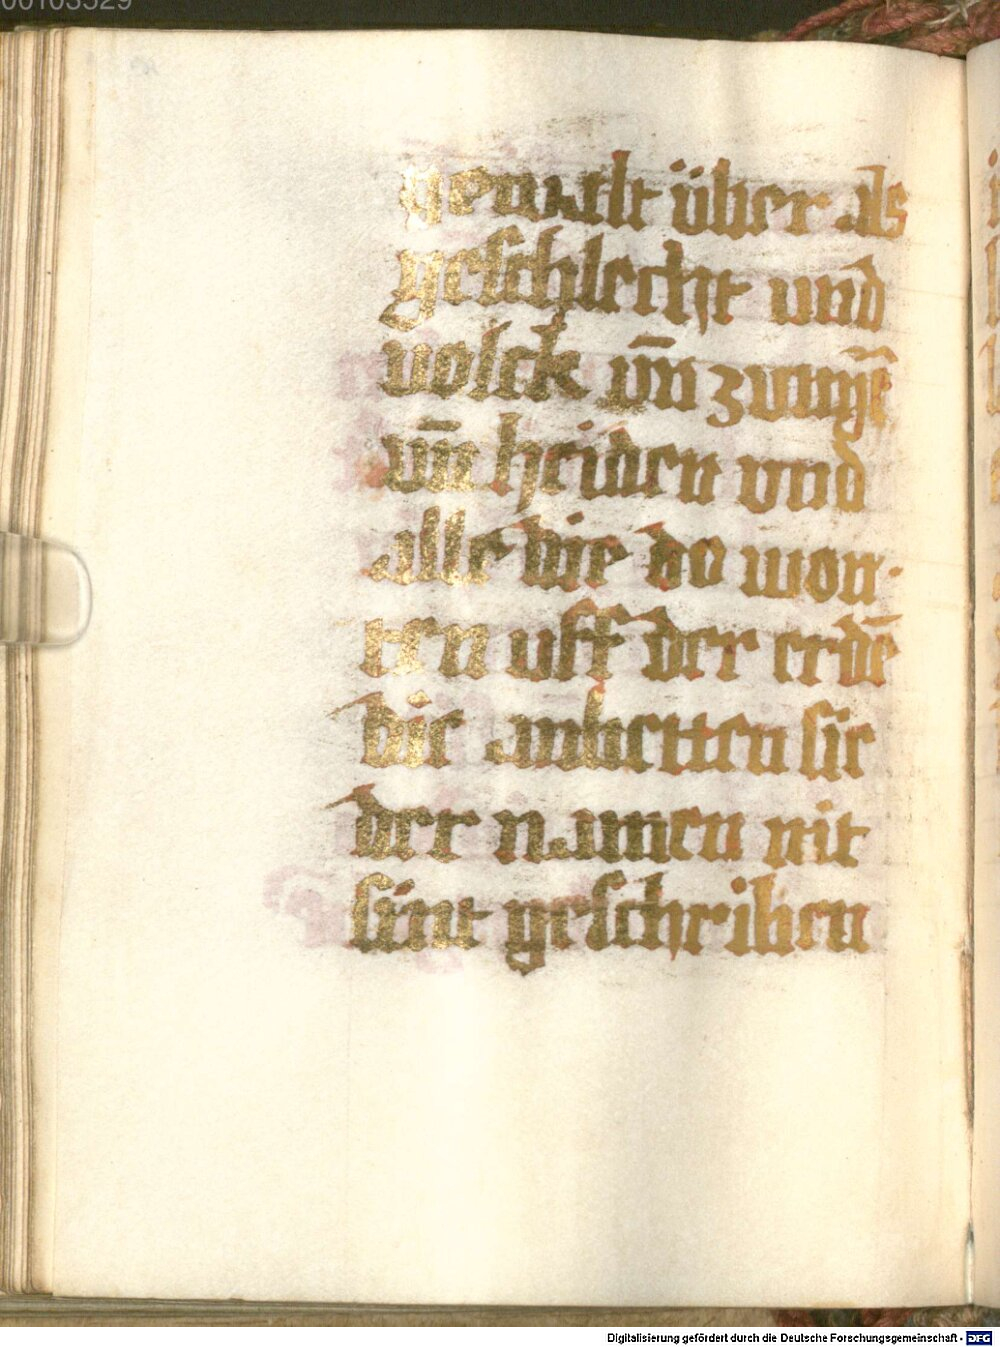 00103529
gewalt über als
geschlecht und
volck vn̄ zungē
vn̄ heiden vnd
alle die do won-
ten uff der erdē
die anbetten sie
der namen nit
sint geschriben
Digitalisierung gefördert durch die Deutsche Forschungsgemeinschaft - DFG